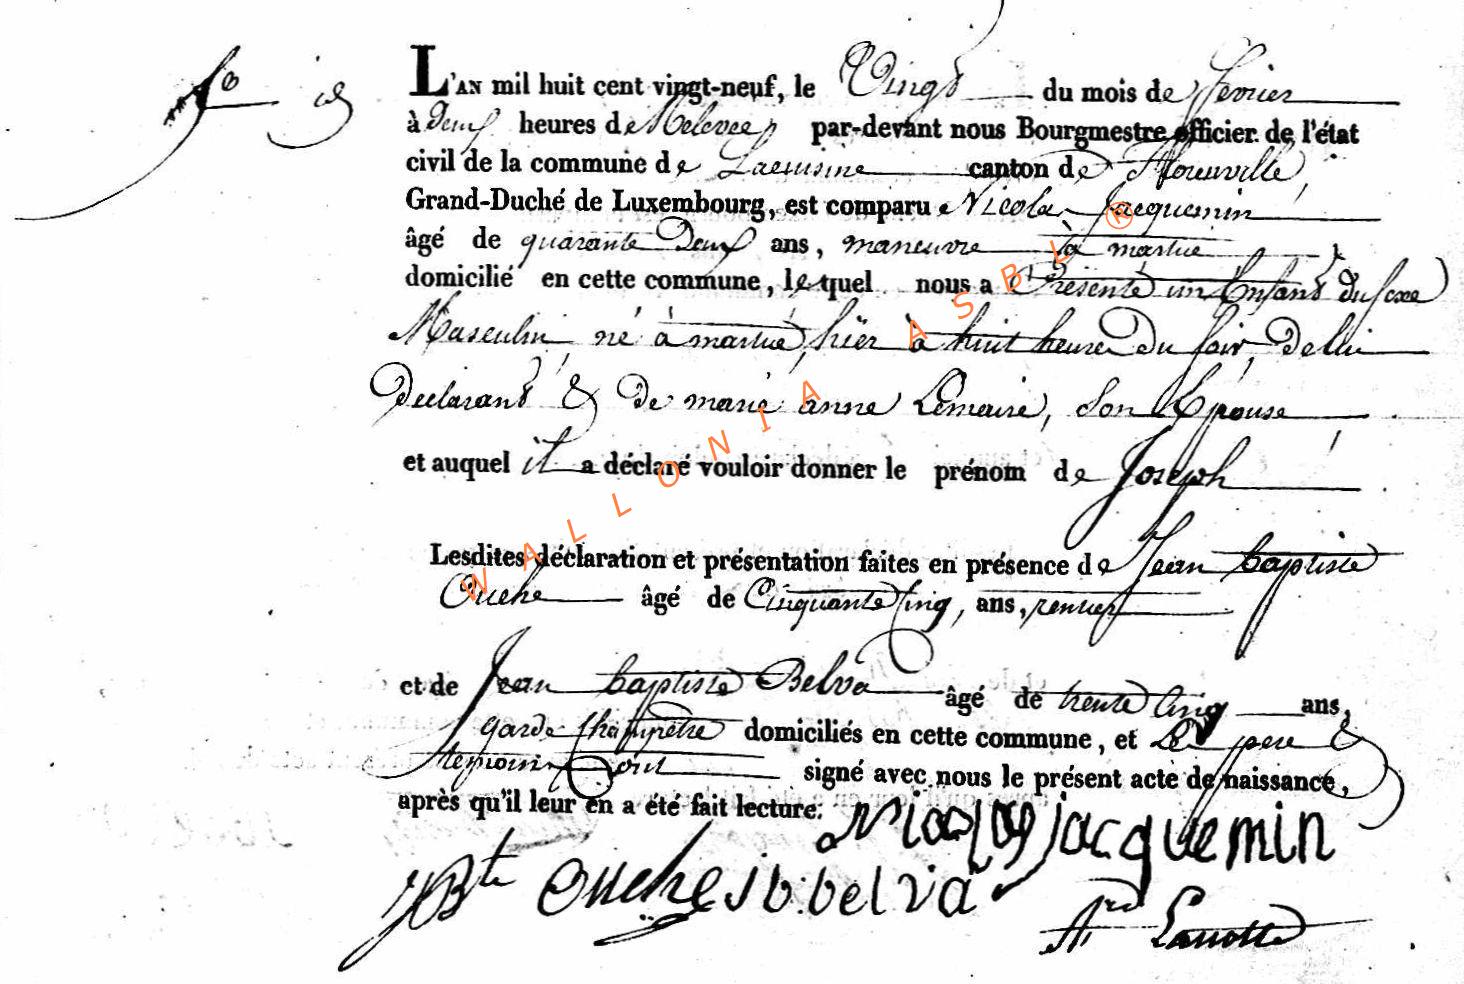 L'AN mil huit cent vingt-neuf, le Vingt du mois de fevrier
à deux heures de Relevée par-devant nous Bourgmestre officier de l'état
civil de la commune de Lacuisine canton de Florenville,
Grand-Duché de Luxembourg, est comparu Nicolas Jacquemin
âgé de quarante Deux ans, maneuvre à martué
domicilié en cette commune, lequel nous a Présenté un Enfant du sexe
Masculin né à martué, hier à huit heures du soir, de lui
declarant & de marie anne Lemaire, son Epouse
et auquel il a déclaré vouloir donner le prénom de Joseph
Lesdites déclaration et présentation faites en présence de Jean baptiste
Ouche âgé de Cinquante Cinq, ans, rentier
et de Jean baptiste Belva âgé de trente Cinq ans,
garde champêtre domiciliés en cette commune, et Le pere &
temoins ont signé avec nous le présent acte de naissance,
après qu'il leur en a été fait lecture.
Nicolas jacquemin
JBte Ouche J b. belva
Lanotte
WALLONIA ASBL ®